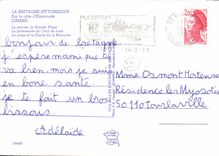 LA BRETAGNE PITTORESQUE
Sur la côte d'Émeraude
DINARD
La piscine, la Grande Plage
La promenade du Clair de Lune
La plage et la Pointe de la Malouine
bonjour de bretagne
j'espère mamie que ça
va bien, moi je suis
en bone santé
je te fait un gros
bisous
Adélaïde
PLEURTUIT
16-2
Mme Osmont Hortense
Résidence les Myosotis
50110 tourlaville